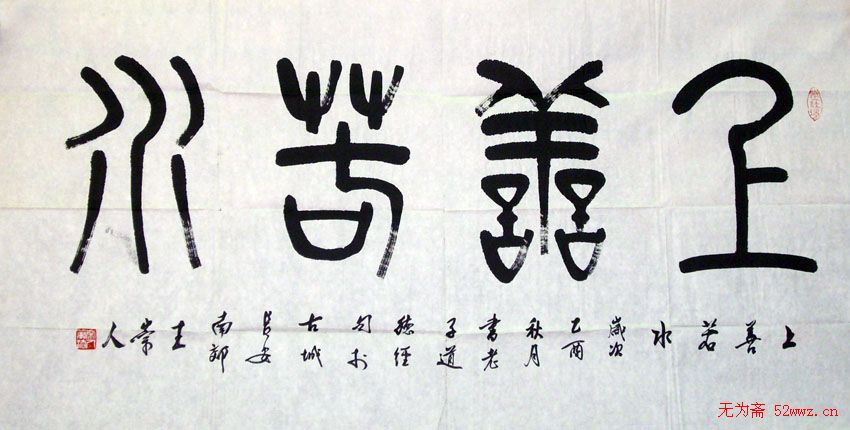 上善若水
上善若水 歲次乙酉秋月書老子道德經句於古城長安南郊 王崇人
无为斋 52wwz.cn